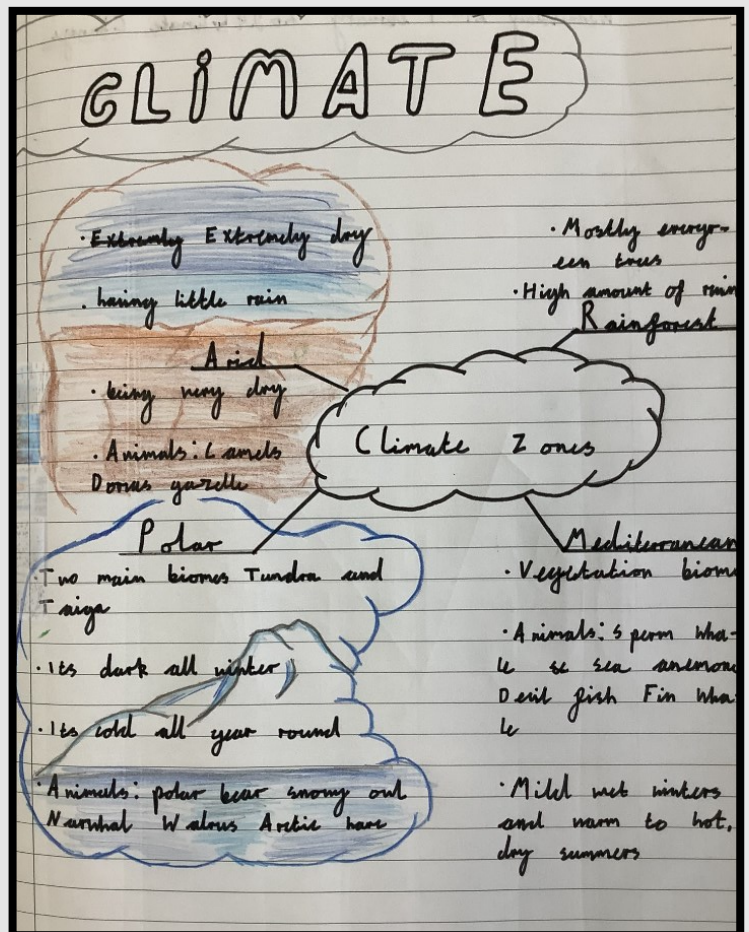 CLIMATE
· Extremly Extremely dry
· having little rain
Arid
· being very dry
· Animals: Camels
Dorcas gazelle
· Mostly evergr-
een trees
· High amount of rain
Rainforest
Climate Zones
Polar
· Two main biomes Tundra and
Taiga
· Its dark all winter
· Its cold all year round
· Animals: polar bear snowy owl
Narwhal Walrus Arctic hare
Mediterranean
· Vegetation biome
· Animals: Sperm wha-
le sea anemon
Devil fish Fin wha
le
· Mild wet winters
and warm to hot,
dry summers